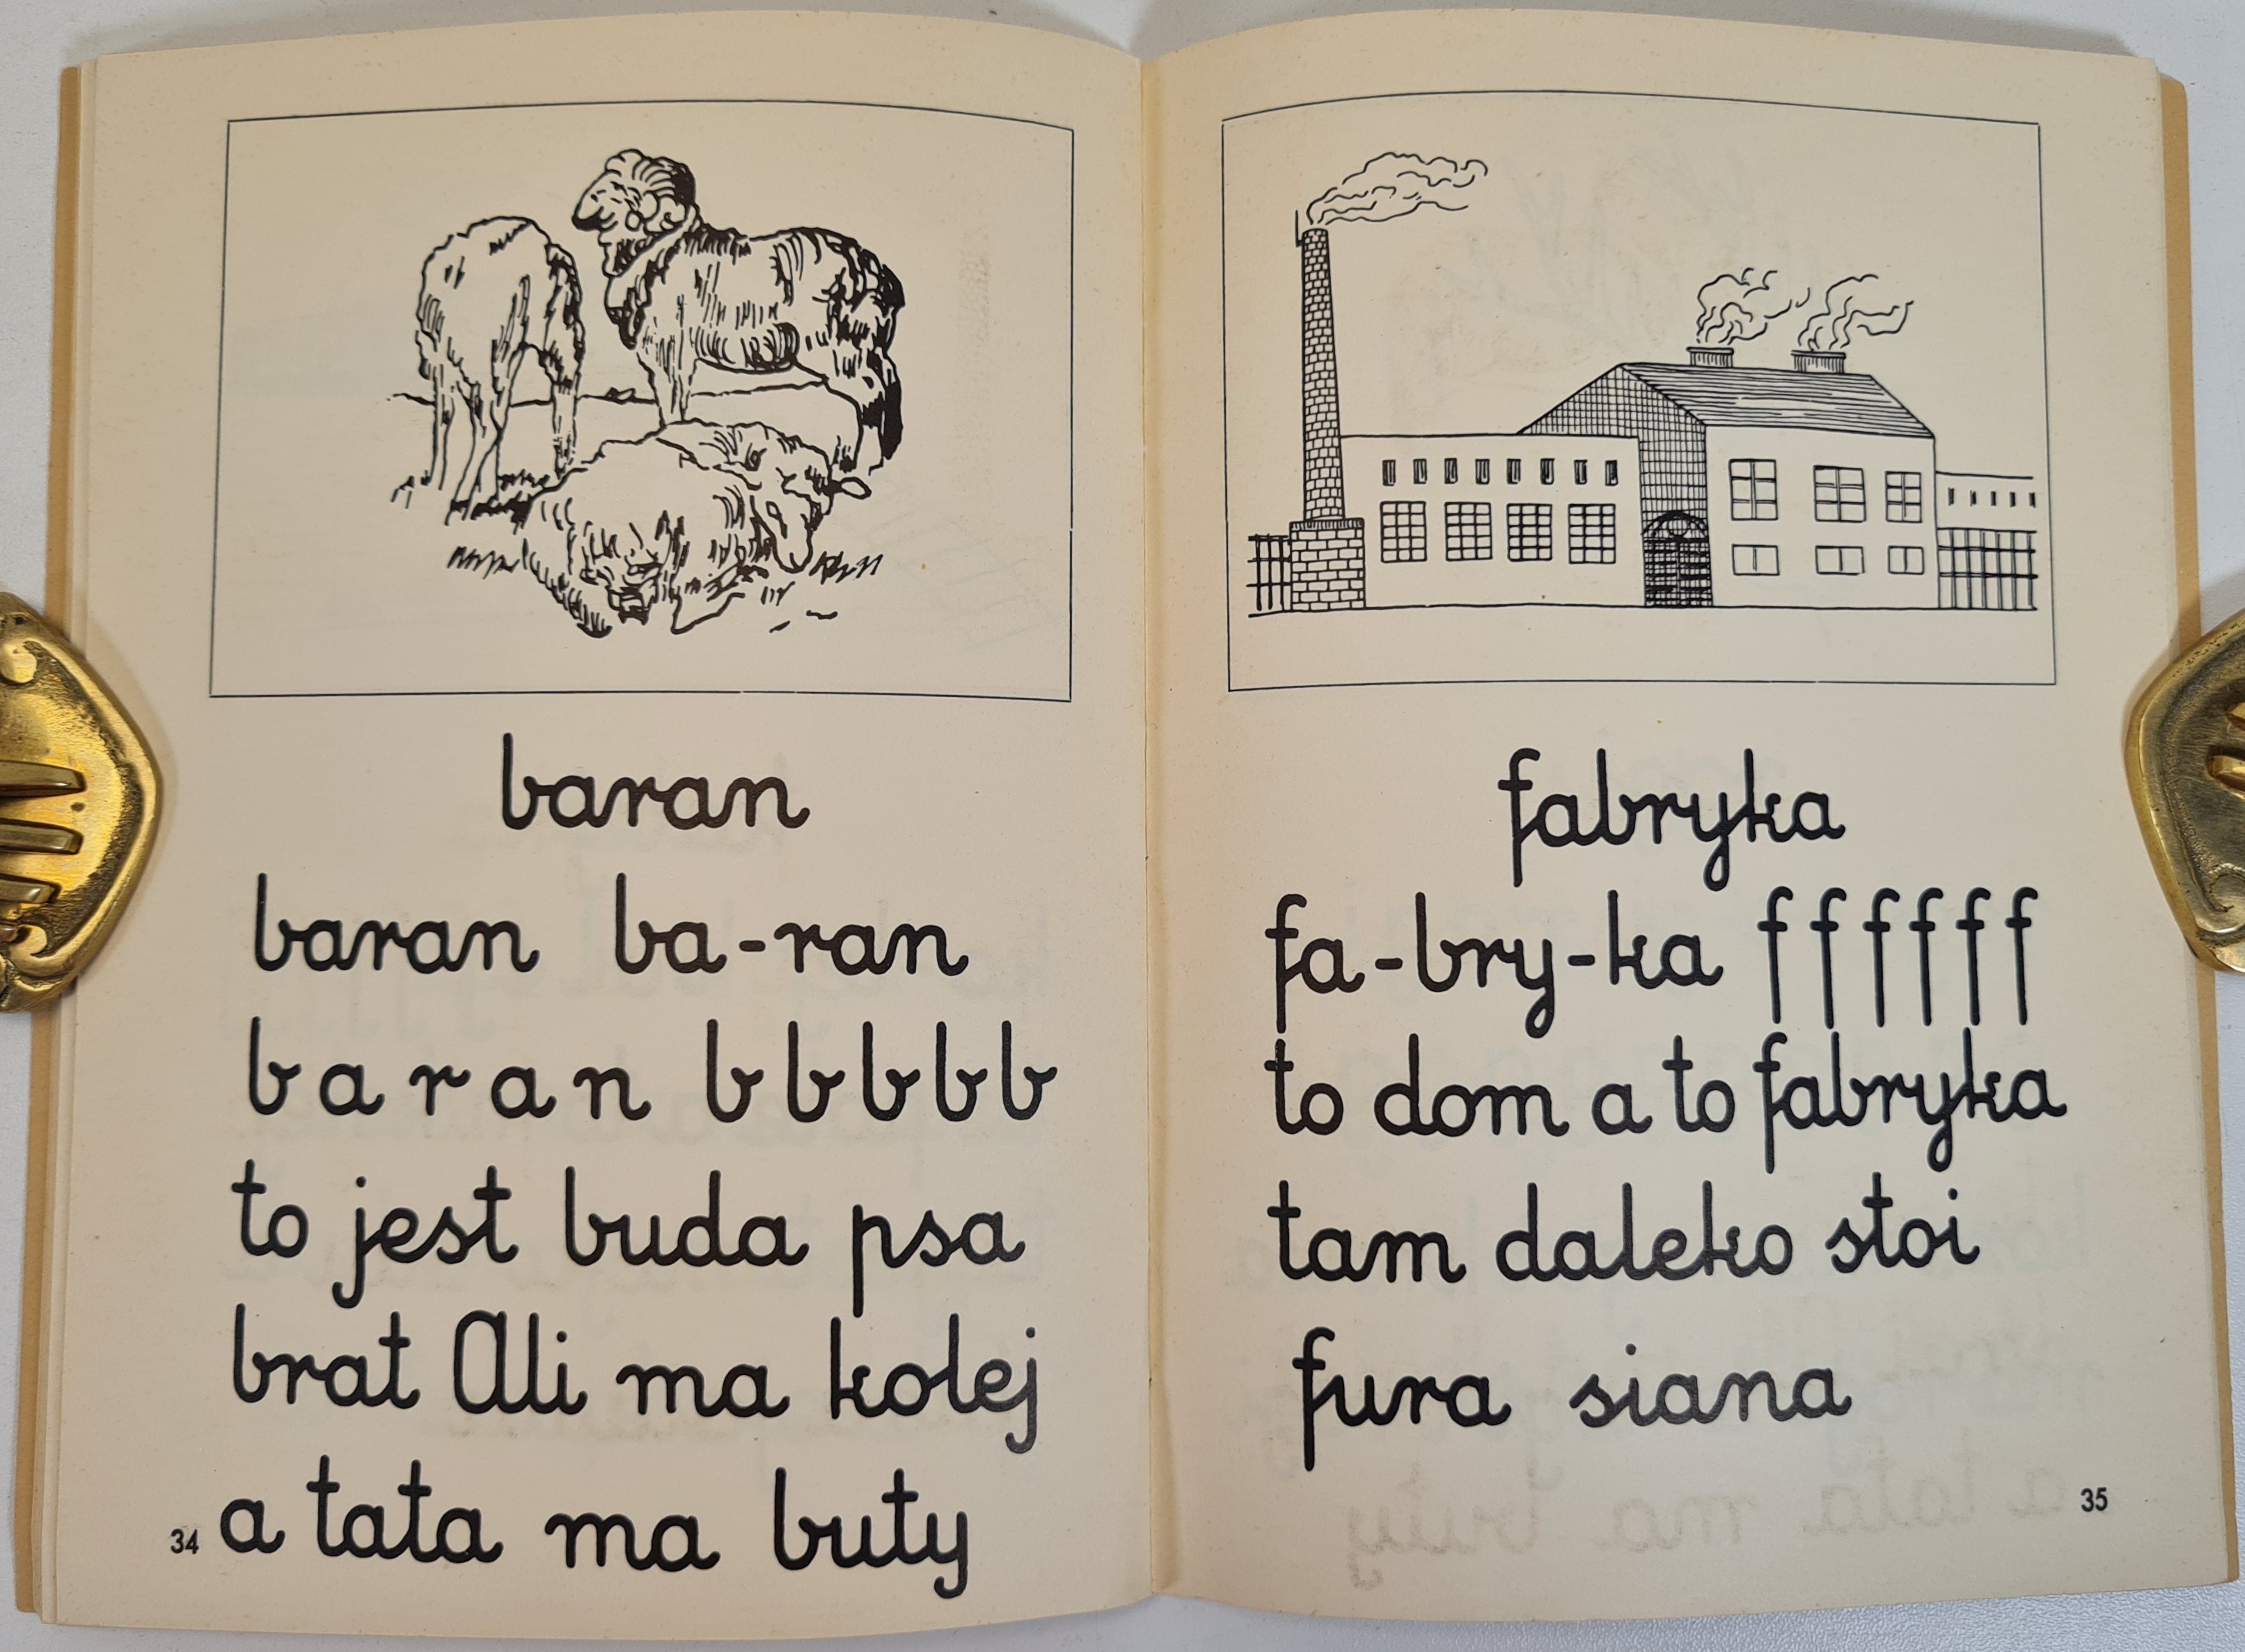 baran
baran ba-ran
b a r a n b b b b b
to jest buda psa
brat Ali ma kolej
a tata ma buty
34
fabryka
fa-bry-ka f f f f f f
to dom a to fabryka
tam daleko stoi
fura siana
35